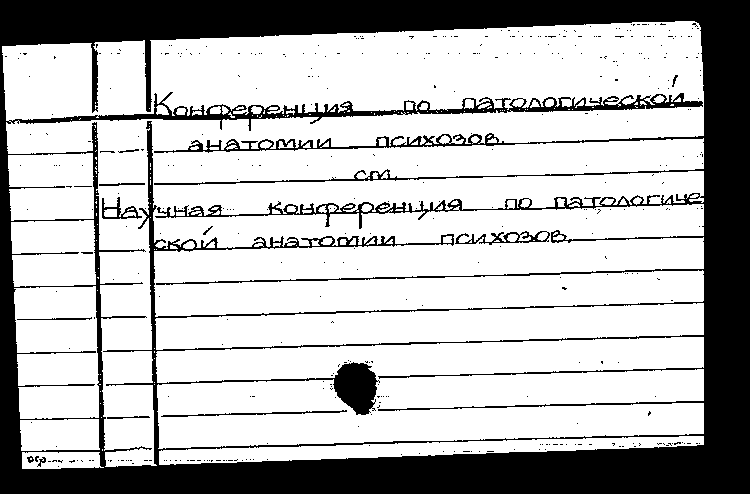 Конференция по патологической
анатомии психозов.
см.
Научная конференция по патологиче-
ской анатомии психозов.